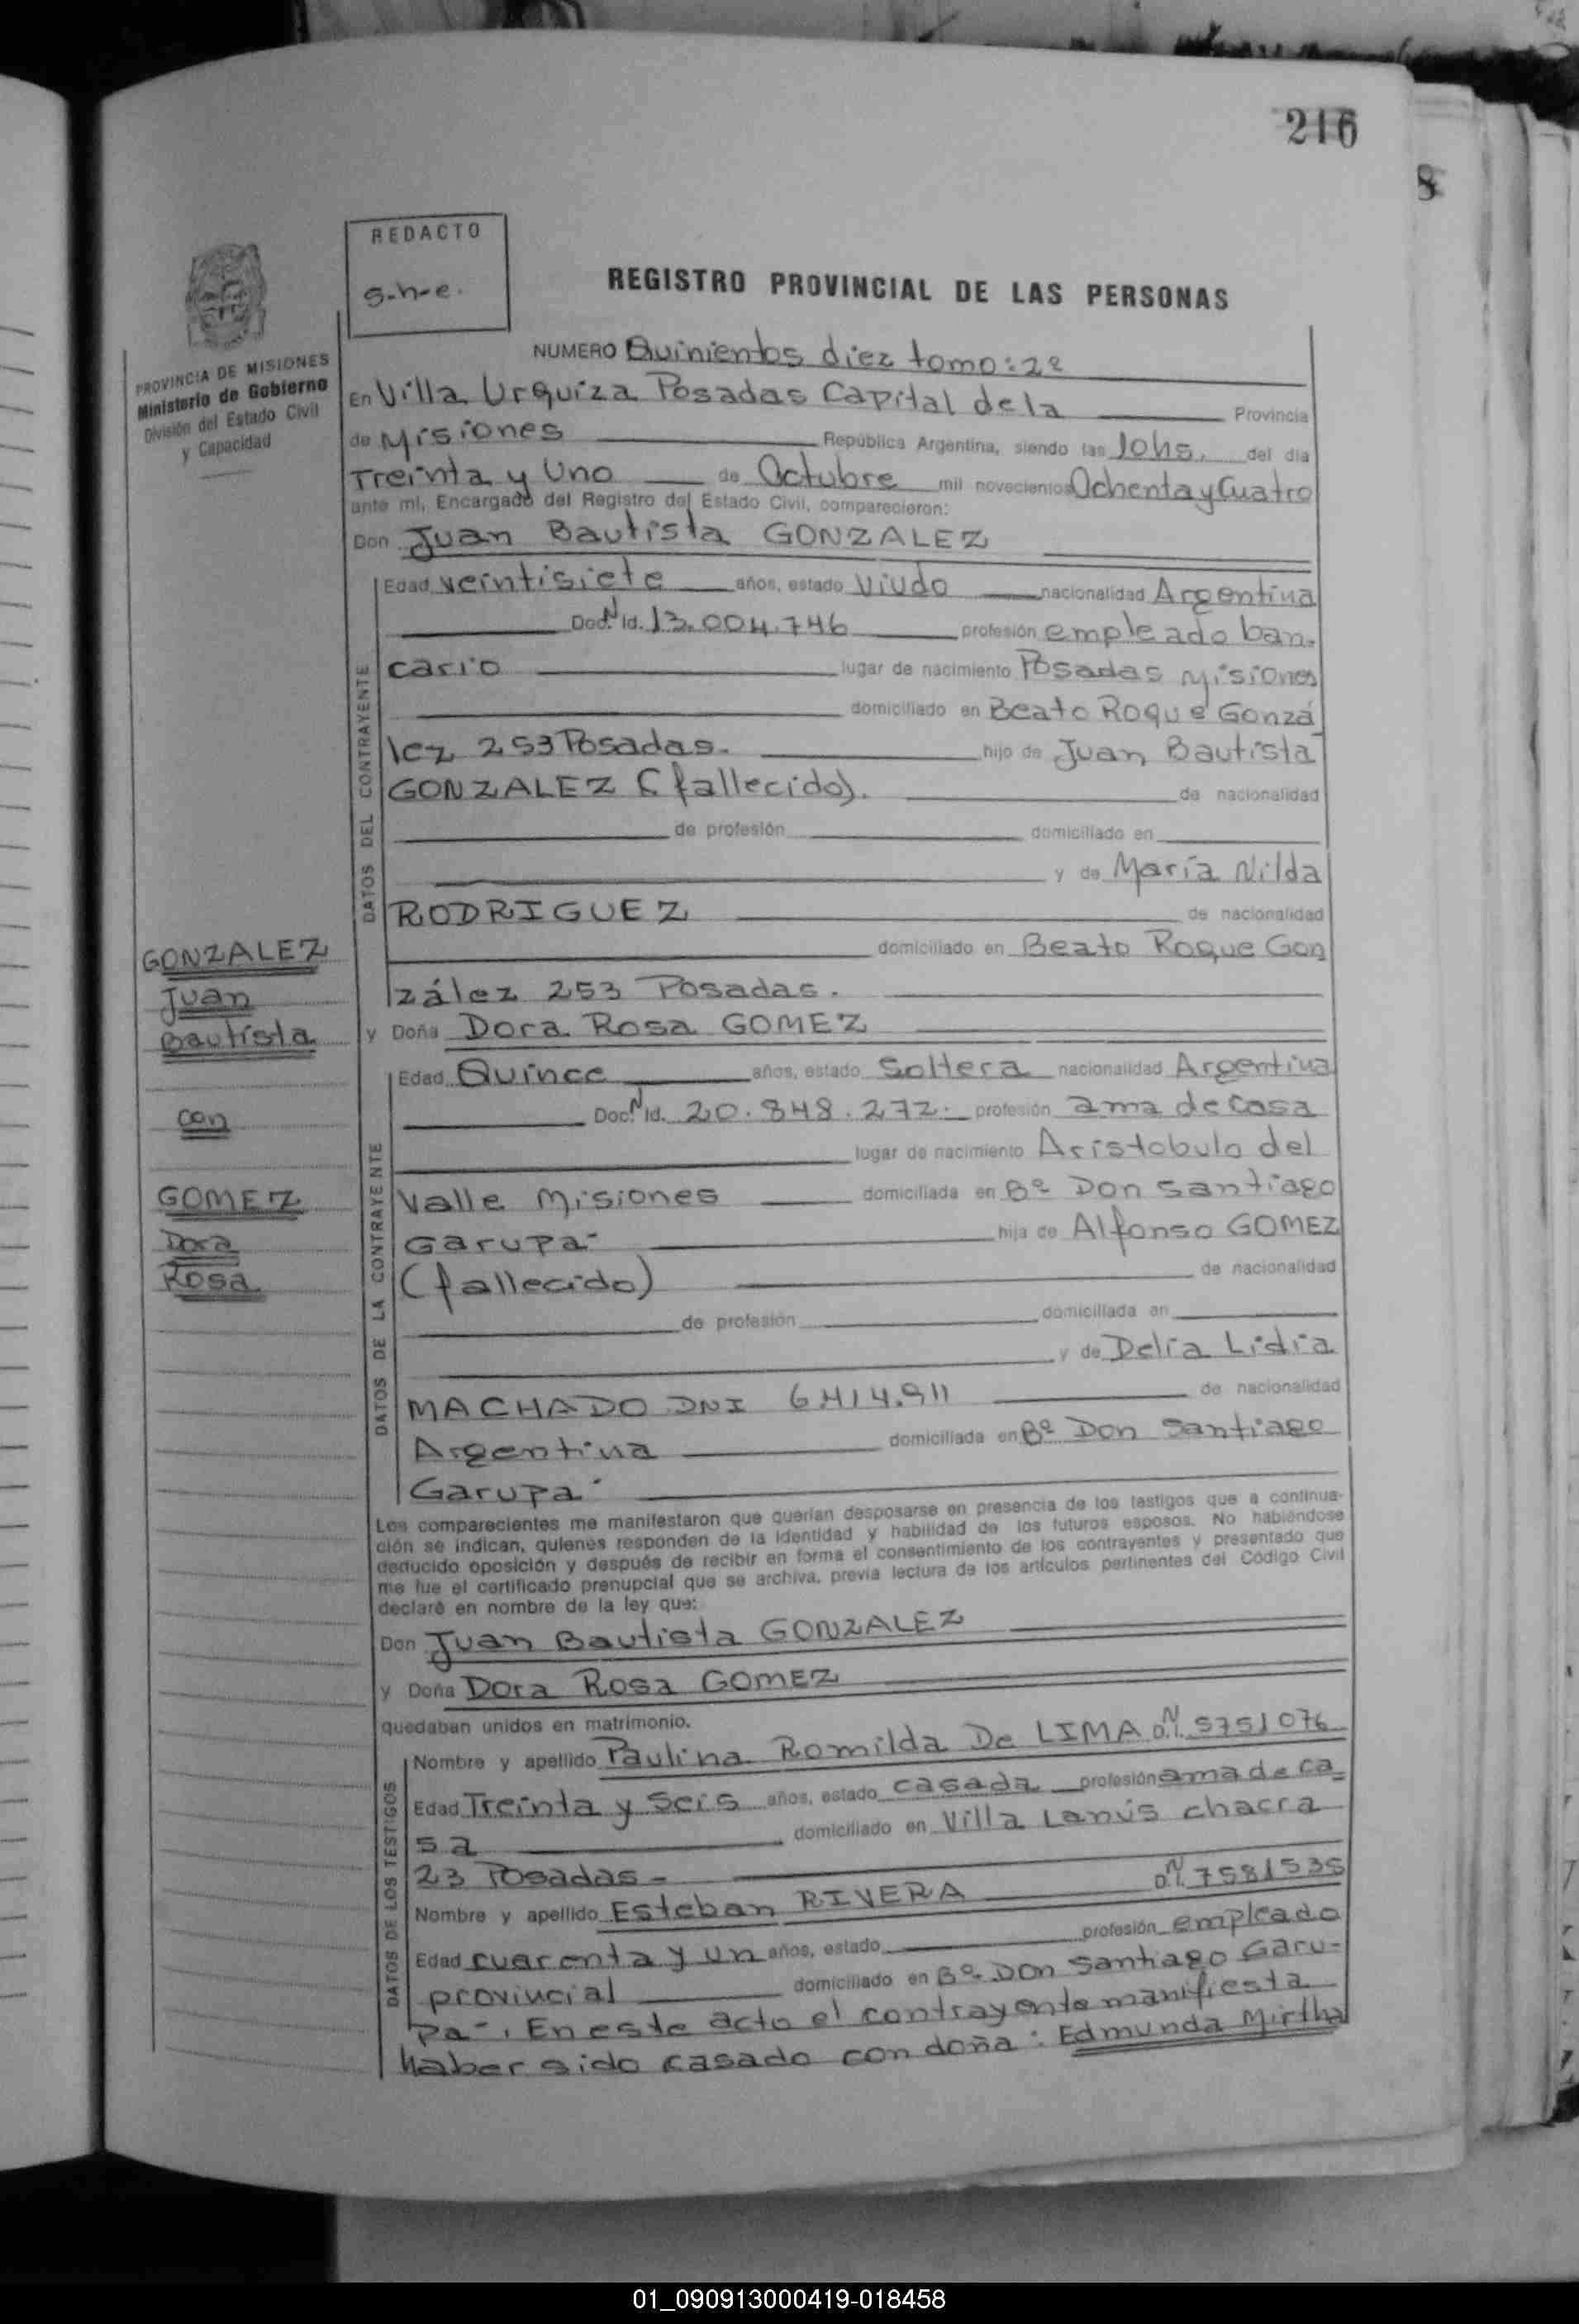 216
8
REDACTO
s-h-e.
REGISTRO PROVINCIAL DE LAS PERSONAS
PROVINCIA DE MISIONES
Ministerio de Gobierno
División del Estado Civil
y Capacidad
NUMERO Quinientos diez tomo: 2º
En Villa Urquiza Posadas Capital de la Provincia
de Misiones República Argentina, siendo las 10hs. del día
Treinta y Uno de Octubre mil novecientos Ochenta y Cuatro
ante mí, Encargado del Registro del Estado Civil, comparecieron:
Don Juan Bautista GONZALEZ
DATOS DEL CONTRAYENTE
Edad veintisiete años, estado Viudo nacionalidad Argentina
Doc. N Id. 13.004.746 profesión empleado ban-
cario lugar de nacimiento Posadas Misiones
domiciliado en Beato Roque Gonzá
lez 253 Posadas. hijo de Juan Bautista
GONZALEZ (fallecido). de nacionalidad
de profesión domiciliado en
y de María Nilda
RODRIGUEZ de nacionalidad
domiciliado en Beato Roque Gon
zález 253 Posadas.
GONZALEZ
Juan
Bautista
con
GOMEZ
Dora
Rosa
y Doña Dora Rosa GOMEZ
DATOS DE LA CONTRAYENTE
Edad Quince años, estado Soltera nacionalidad Argentina
Doc. N Id. 20.848.272. profesión ama de casa
lugar de nacimiento Aristobulo del
Valle Misiones domiciliada en Bº Don Santiago
Garupa- hija de Alfonso GOMEZ
(fallecido) de nacionalidad
de profesión domiciliada en
y de Delia Lidia
MACHADO DNI 6.414.911 de nacionalidad
Argentina domiciliada en Bº Don Santiago
Garupa-
Los comparecientes me manifestaron que querían desposarse en presencia de los testigos que a continua-
ción se indican, quienes responden de la identidad y habilidad de los futuros esposos. No habiéndose
deducido oposición y después de recibir en forma el consentimiento de los contrayentes y presentado que
me fue el certificado prenupcial que se archiva, previa lectura de los artículos pertinentes del Código Civil
declaré en nombre de la ley que:
Don Juan Bautista GONZALEZ
y Doña Dora Rosa GOMEZ
quedaban unidos en matrimonio.
DATOS DE LOS TESTIGOS
Nombre y apellido Paulina Romilda De LIMA D.N.I. 5751076
Edad Treinta y Seis años, estado casada profesión ama de ca-
sa domiciliado en Villa Lanús chacra
23 Posadas-
Nombre y apellido Esteban RIVERA D.N.I. 7581535
Edad cuarenta y un años, estado profesión empleado
provincial domiciliado en Bº Don Santiago Garu-
pa-, En este acto el contrayente manifiesta
haber sido casado con doña: Edmunda Mirtha
01_090913000419-018458